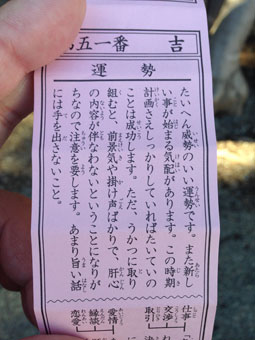 五一番 吉
運勢
たいへん威勢のいい運勢です。また新し
い事が始まる気配があります。この時期
計画さえしっかりしていればたいていの
ことは成功します。ただ、うかつに取り
組むと、前景気や掛け声ばかりで、肝心
の内容が伴なわないということになりが
ちなので注意を要します。あまり旨い話
には手を出さないこと。
仕事
交渉
取引
愛情
縁談
恋愛